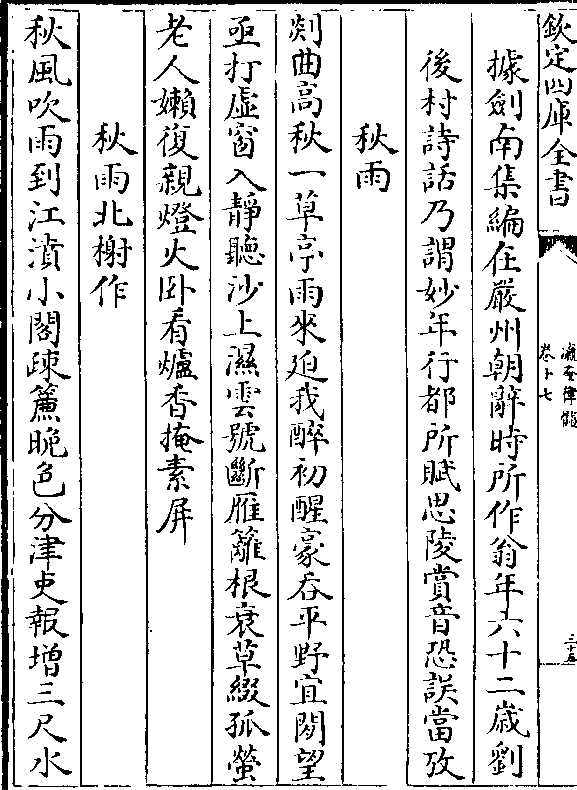 欽定四庫全書
瀛奎律髓
卷十七
三十五
據劍南集編在嚴州朝辭時所作翁年六十二歲劉
後村詩話乃謂妙年行都所賦思陵賞音恐誤當攷
秋雨
剡曲高秋一草亭雨來迨我醉初醒豪吞平野宜閒望
亟打虛窗入靜聽沙上濕雲號斷雁籬根衰草綴孤螢
老人嬾復親燈火卧看爐香掩素屏
秋雨北榭作
秋風吹雨到江濆小閣疎簾晚色分津吏報增三尺水